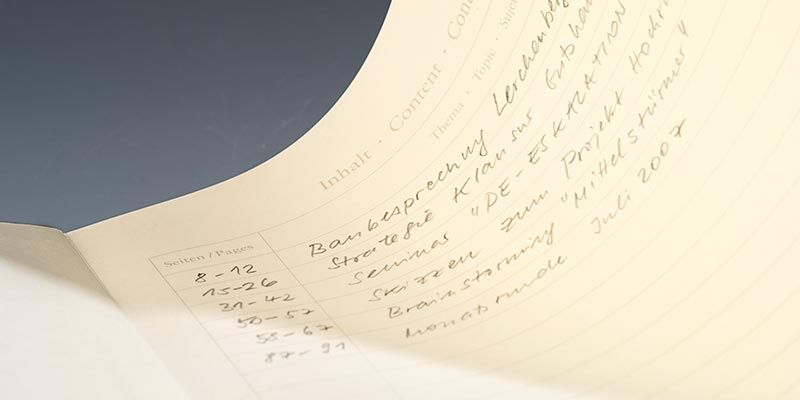 Inhalt · Content · Con
Thema · Topic · Sujet
Seiten / Pages
8-12 Baubesprechung Lerchenberg
15-26 Strategie Klausur
31-42 Seminar "DE-ESKALATION
50-57 Skizzen zum Projekt
58-67 Brainstorming "Mittelstürmer"
87-91 Monatsrunde Juli 2007